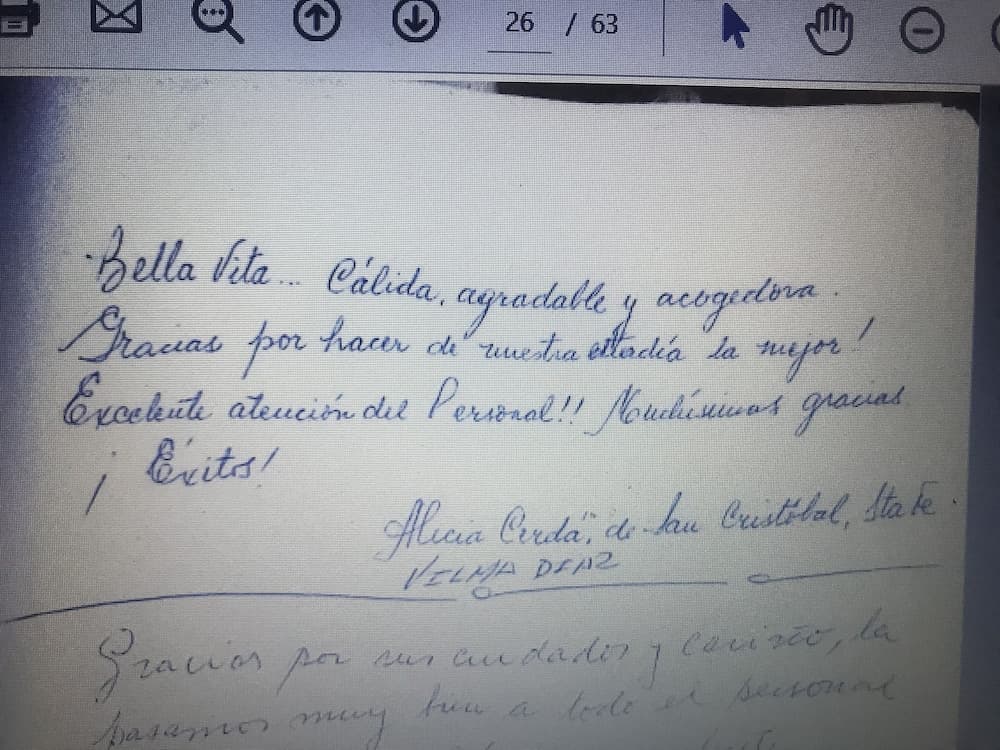 26 / 63
Bella Vita... Cálida, agradable y acogedora.
Gracias por hacer de nuestra estadía la mejor!
Excelente atención del Personal!! Muchísimas gracias
¡ Éxitos!
Alicia Cerdá, de San Cristóbal, Sta Fe.
VILMA DIAZ
Gracias por sus cuidados y cariño, la
pasamos muy bien a todo el personal